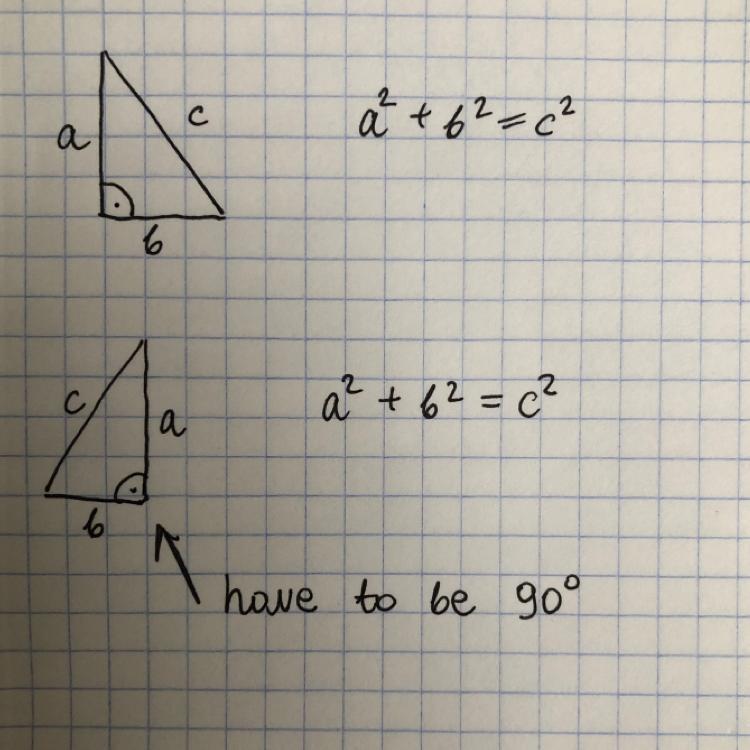 a
c
b
a² + b² = c²
c
a
b
a² + b² = c²
have to be 90°